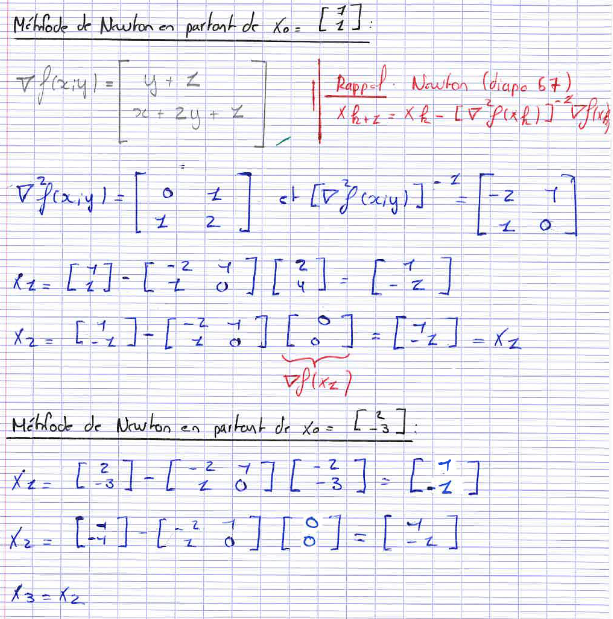 Méthode de Newton en partant de x0 = [1 1] :
∇f(x;y) = [y + 1
x + 2y + 1]
Rappel : Newton (diapo 67)
xk+1 = xk - [∇²f(xk)]^-1 ∇f(xk)
∇²f(x;y) = [0 1 1 2] et [∇²f(x;y)]^-1 = [-2 1 1 0]
x1 = [1 1] - [-2 1 1 0] [2 4] = [1 -1]
x2 = [1 -1] - [-2 1 1 0] [0 0] = [1 -1] = x1
∇f(x1)
Méthode de Newton en partant de x0 = [2 -3] :
x1 = [2 -3] - [-2 1 1 0] [-2 -3] = [1 -1]
x2 = [1 -1] - [-2 1 1 0] [0 0] = [1 -1]
x3 = x2